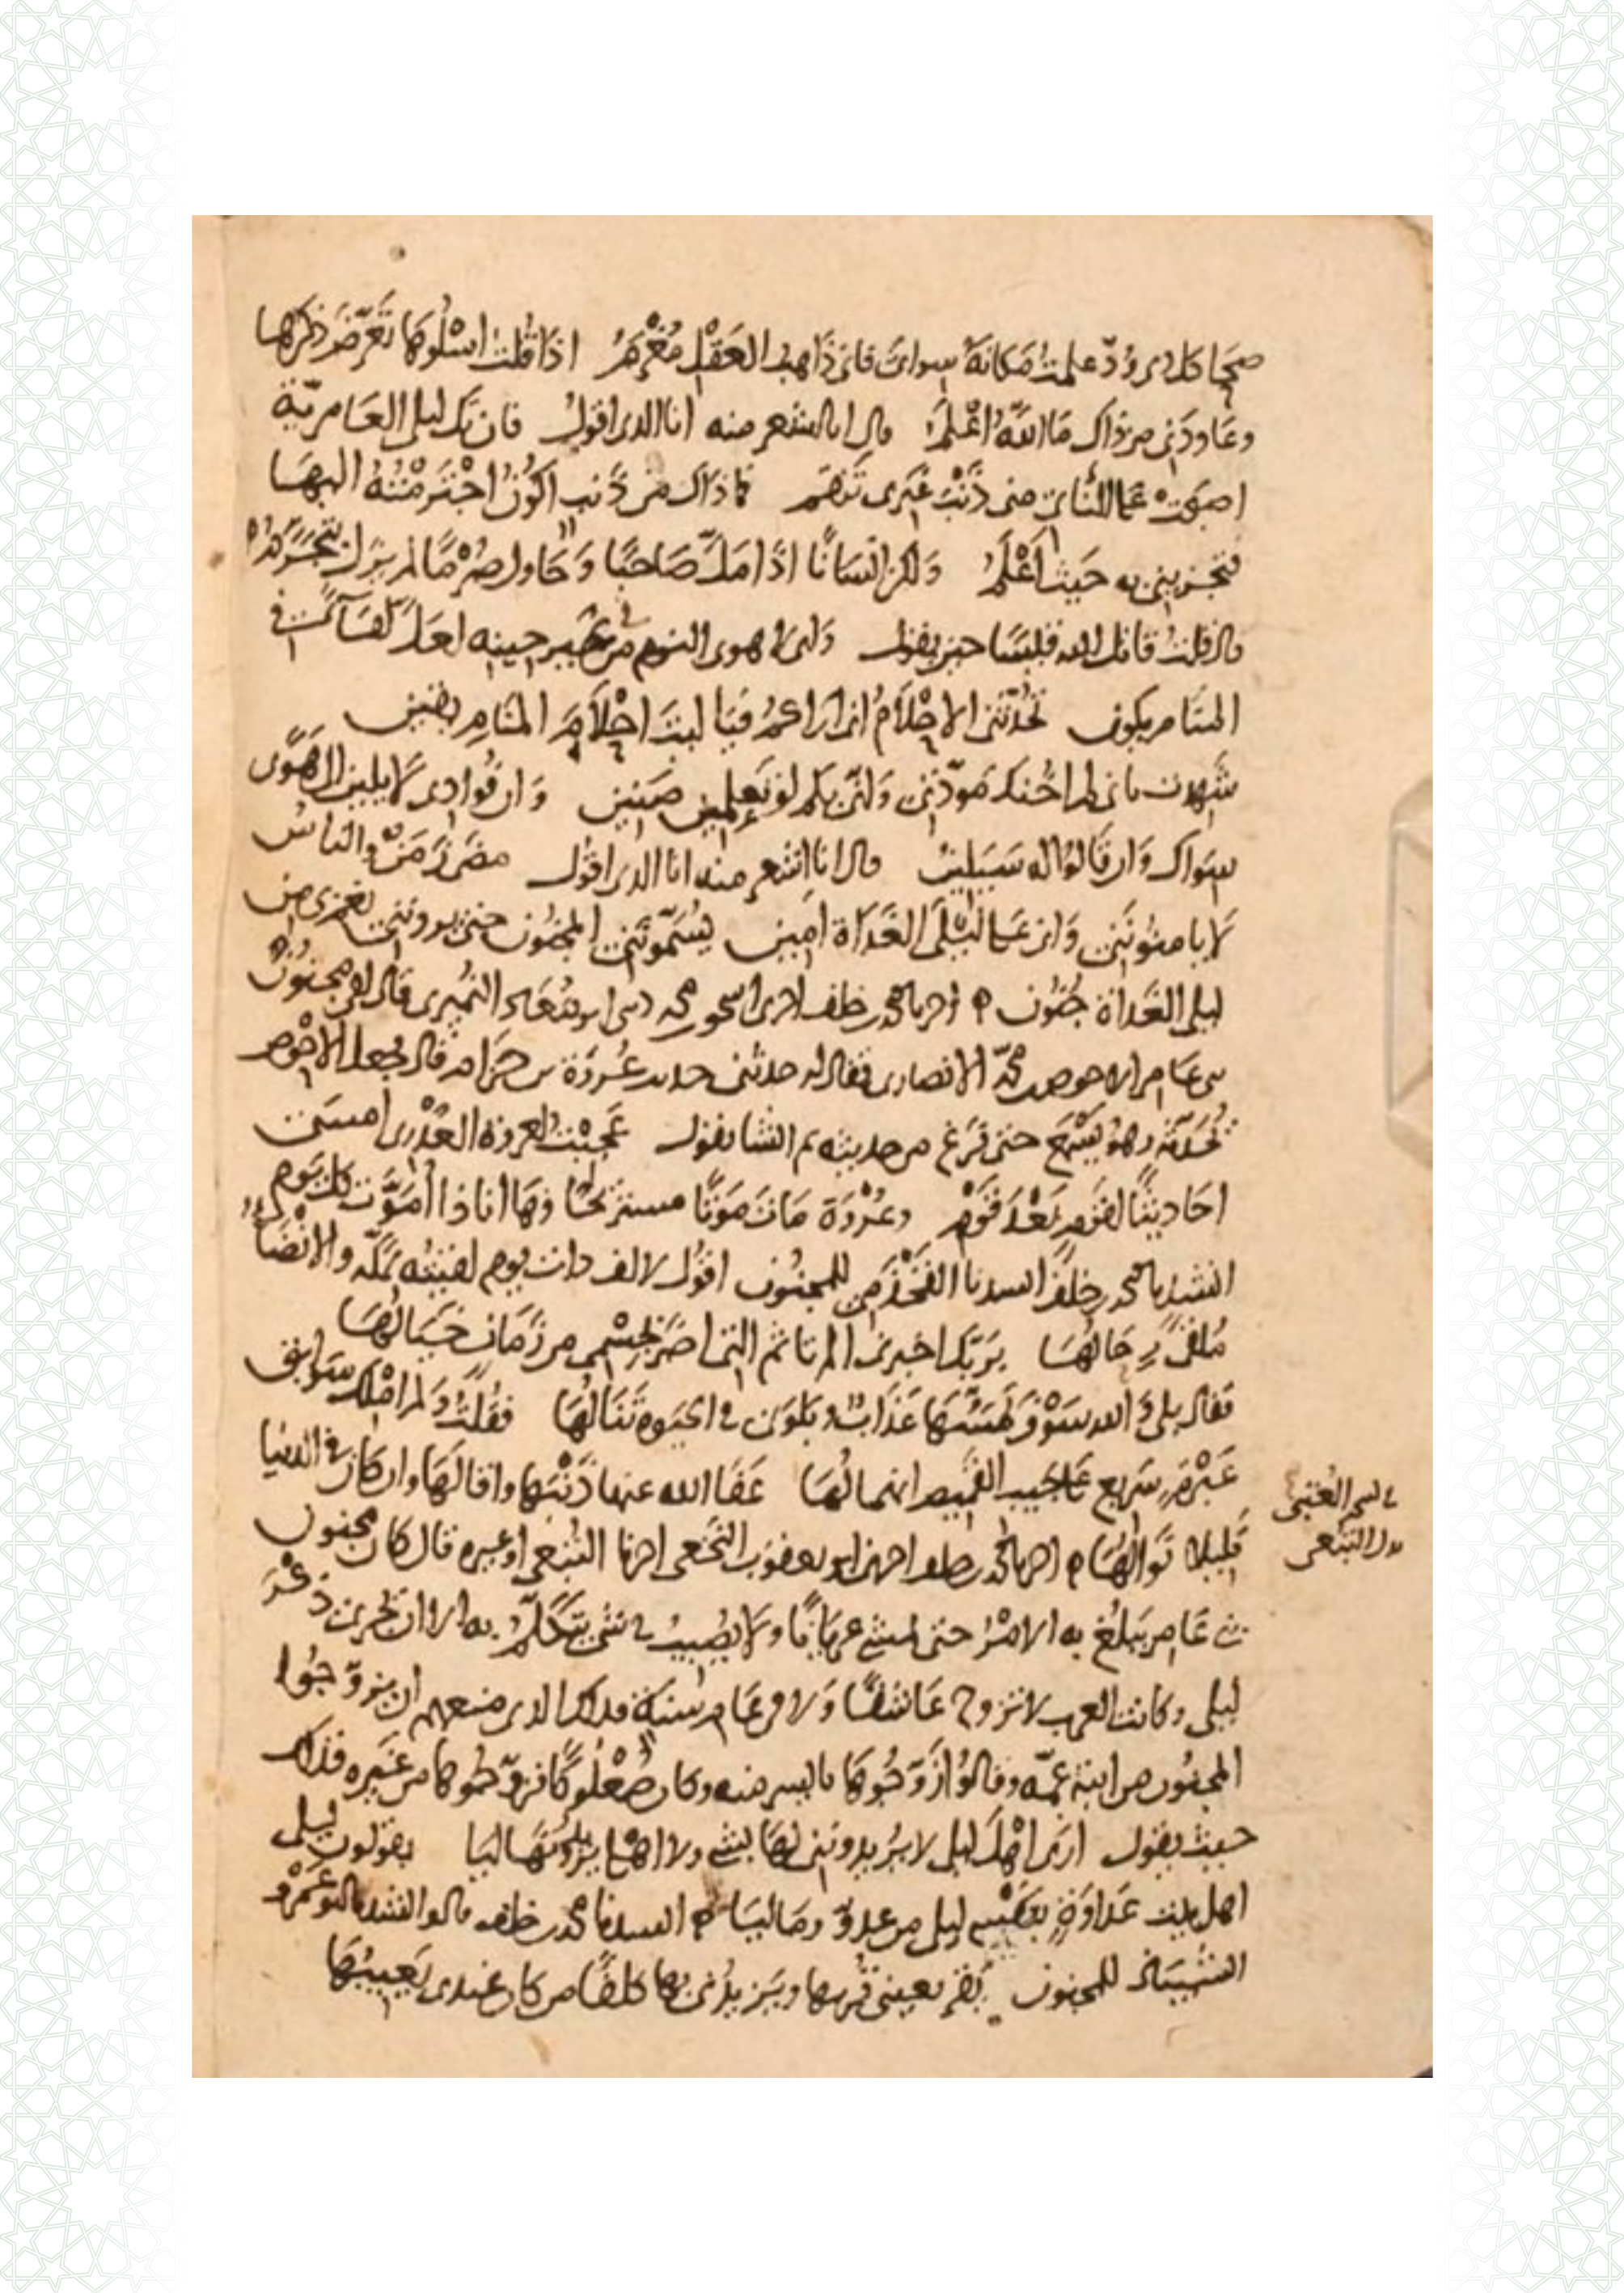 صَحَا كل ذي وُدّ علمتُ مَكانهُ سِوايَ فاني ذَاهبُ العَقْل مُغْرَمُ اذا قُلتُ اسْلُوهَا تَعَرَّضَ ذِكرُها
وعَاوَدَني من ذاك مَا اللّهُ اَعْلَمُ قال انا اشعر منه انا الذي اقول فان تك ليلى العَامريّة
اصبحت على النأي مني ذَنْبَ غَيري تَنقمُ فما ذاك من ذَنب اكُونُ اجْتَرَمْتُهُ اليهَا
فتجزيني به حَيث اَعْلَمُ ولكن انسَانًا اذَا مَلَّ صَاحبًا وَحَاول صُرْمًا لم يزل يَتَجَرَّمُ
قال قلت قاتل الله قيسًا حين يقول وَاني لاهوى النوم من غير حينه لعَلّ لقَآءً في
المنَام يكون تُحَدّثني الاحْلَامُ اني اراكمُ فيَا ليتَ احْلَامَ المَنَامِ يقين
شَهِدت باني لم احُل عن مَوَدّتي وَاني بكم لو تَعلمين ضَنين وَان فُوادي لا يلين الى هَوًى
سِوَاك وَان قَالوُا له سَيَلينُ قال انا اشعر منه انا الذي اقول مضى زَمَنٌ والناسُ
لا يامنُونَني وَاني على لَيْلَى الغَدَاة امين يُسَمّونَني المجنُون حين يرونني نعم بي من
ليلى الغَداة جُنُون اخبرنا محمد بن خلف اخبرني اسحق بن محمد حدثني ابو مُعَاذ النُمَيري قال لقي مجنُونُ
بني عَامر الاحوص بن محمّد الانصاري فقال له حدثني حديث عُروَة بن حزَام قال فجعل الاحْوص
يُحَدّثه وهوُ يسْمَع حتى فَرَغ من حديثه ثم انشا يقول عَجِبْتُ لعروة العُذْرِي امسَى
احَاديثًا لقوم بَعْدَ قَوم وعُرْوَة مَاتَ مَوتًا مستريحًا وَهَا انا ذا اُمَوَّت كل يَوم
انشدنا محمد بن خلَف انشدنا القَحْذَمي للمجنُون اقوُل لالف ذات يوم لقيتُه بمكّة والانْضَاءُ
مُلقًى رِحَالُهَا برَبّك اخبرني الم تاثم التي اضَرَّ بجسْمي من زَمَان خَيَالُهَا
فقال بلى وَالله سَوْفَ يَمَسُّهَا عَذَابٌ وبَلوَى في الحيوة تَنَالُهَا فقُلتُ وَلم امْلك سَوابق
عَبْرَةٍ سَرِيع على جَيب القَميص انهمالُهَا عَفَا الله عنها ذَنْبَهَا واقالَهَا وان كان في الدنيا
قَليلا نَوالُهَا اخبرنا محمد بن خلف اخبرني ابو يعقوب النَخَعي اخبرنا التَيْمي او غيره قال كان مجنون
بني عَامر يَبلُغ به الامْرُ حتى يمشي عريَانًا ولا يُصيبُ في شيء يَتَكَلَّمُ به الا ان يجري ذكر
ليلى وكانت العرب لا تزوج عَاشقًا
المجنُون من ابنة عمّه وقالوُا زَوّجُوهَا ما ليس منه وكان صُعْلُوكًا فزَوّجُوها من غَيره فذلك
حيث يقول ارَى اهْلَ ليلى لا يُريدونني لهَا بشيء ولا اهْلي يُرِيدُونَهَا ليَا يقولون ليلى
اهل بيت عَداوَةٍ بنَفْسي ليلى من عدوٍّ ومَاليَا انشدنا محمد بن خلف قال انشدنا ابو عَمْرو
الشَيبَاني للمجنون يَقَرُّ بعيني قُربها ويَزيدُني بها كلفًا من كان عندي يَعيبُهَا